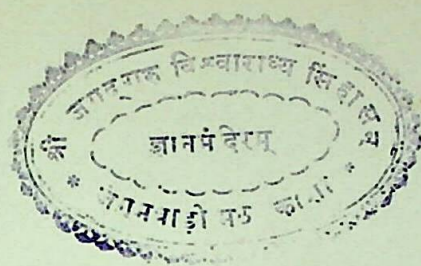 श्री जगद्गुरू विश्वाराध्य सिंहासन
ज्ञानमंदिरम्
* जंगमवाड़ी मठ *